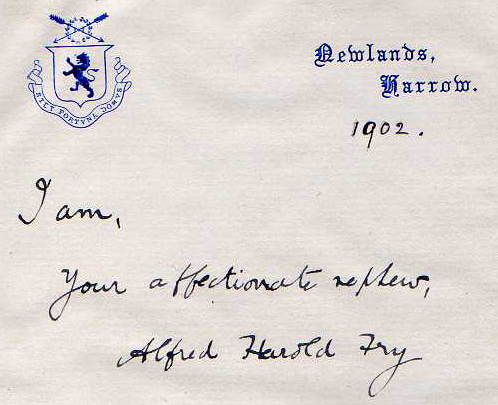 STET FORTVNA DOMVS
Newlands,
Harrow.
1902.
I am,
Your affectionate nephew,
Alfred Harold Fry